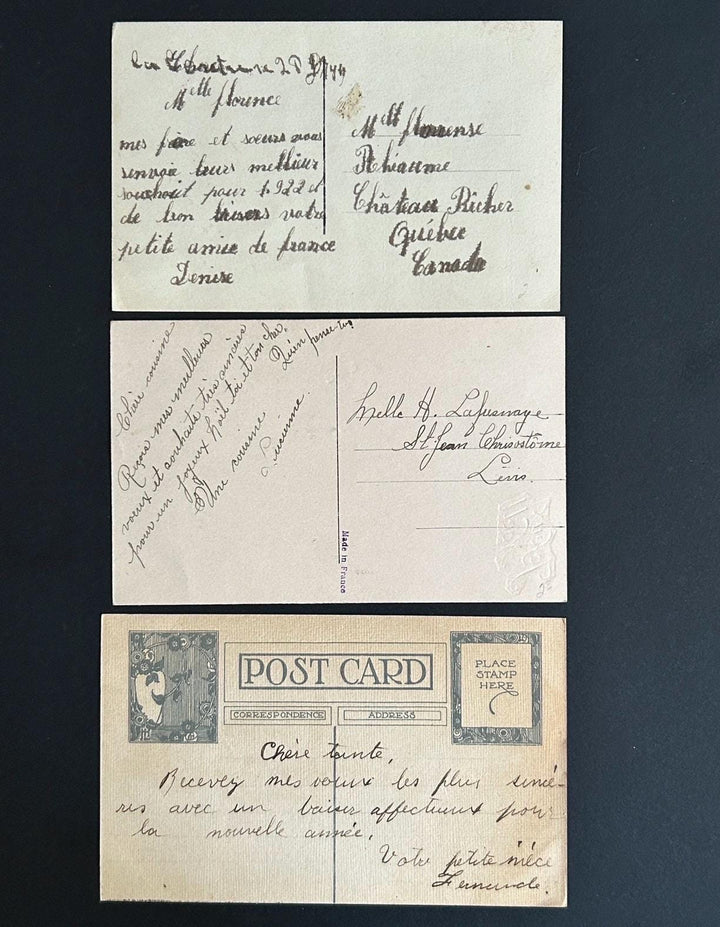 Melle florence
mes frère et soeurs vous
envoie leurs meilleur
souchait pour 1922 et
de bon baisers votre
petite amie de france
Denise
Melle florense
Rhéaume
Château Richer
Québec
Canada
Chère cousine
Reçois mes meilleurs
voeux et souhaits très sincères
pour un joyeux Noël toi et ton cher.
Une cousine
Made in France
Melle H.
St. Jean Chrisostôme
Lévis.
POST CARD
PLACE
STAMP
HERE
CORRESPONDENCE
ADDRESS
Chère tante,
Recevez mes voeux les plus sincè-
res avec un baiser affectueux pour
la nouvelle année.
Votre petite nièce
Fernande.